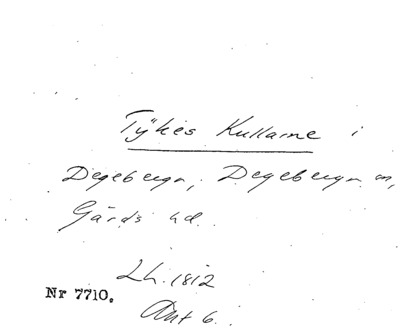 Tykes Kullarne i
Degeberga, Degeberga sn,
Gärds hd.
Lh. 1812
Nr 7710.
Akt 6.